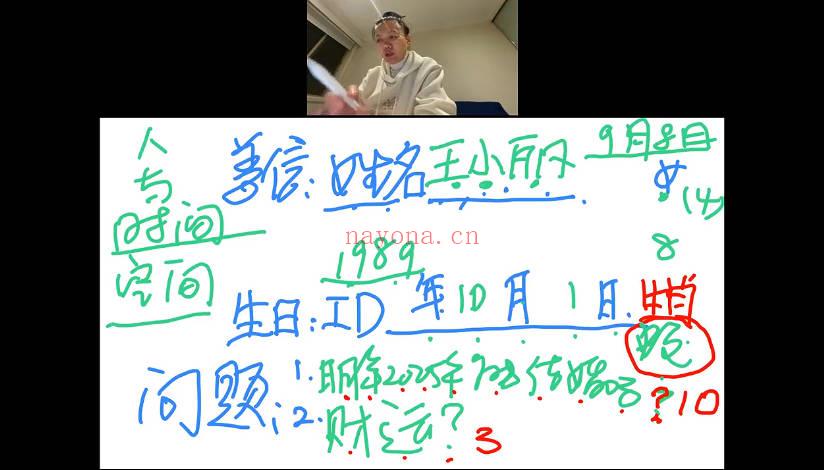 人
与
时间
空间
善信: 姓名 王小丽 9月8日
女
(4)
8
nayona.cn
1989
生日: ID 年 10 月 1 日. 生肖
蛇
问题: 1. 明年2025年能结婚吗? 10
2. 财运? 3